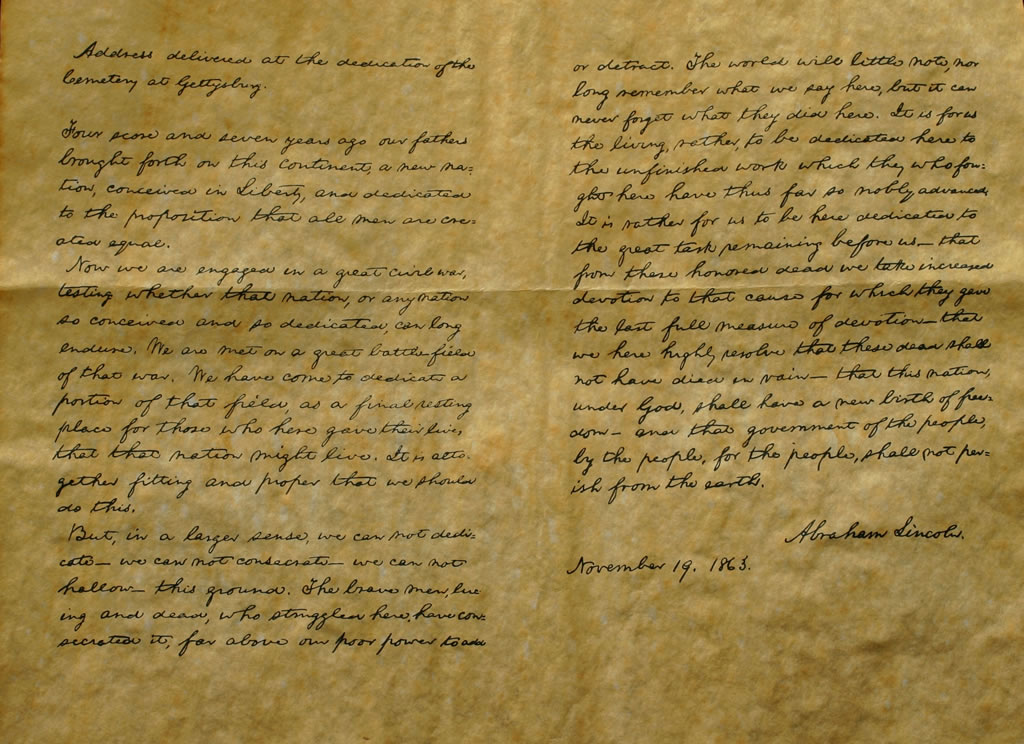 Address delivered at the dedication of the
Cemetery at Gettysburg.
Four score and seven years ago our fathers
brought forth on this continent, a new na=
tion, conceived in Liberty, and dedicated
to the proposition that all men are cre=
ated equal.
Now we are engaged in a great civil war,
testing whether that nation, or any nation
so conceived and so dedicated, can long
endure. We are met on a great battle-field
of that war. We have come to dedicate a
portion of that field, as a final resting
place for those who here gave their lives,
that that nation might live. It is alto-
gether fitting and proper that we should
do this.
But, in a larger sense, we can not dedi-
cate— we can not consecrate— we can not
hallow— this ground. The brave men, liv-
ing and dead, who struggled here, have con-
secrated it, far above our poor power to add
or detract. The world will little note, nor
long remember what we say here, but it can
never forget what they did here. It is for us
the living, rather, to be dedicated here to
the unfinished work which they who fou-
ght here have thus far so nobly advanced.
It is rather for us to be here dedicated to
the great task remaining before us— that
from these honored dead we take increased
devotion to that cause for which they gave
the last full measure of devotion— that
we here highly resolve that these dead shall
not have died in vain— that this nation,
under God, shall have a new birth of free=
dom— and that government of the people,
by the people, for the people, shall not per=
ish from the earth.
Abraham Lincoln.
November 19, 1863.